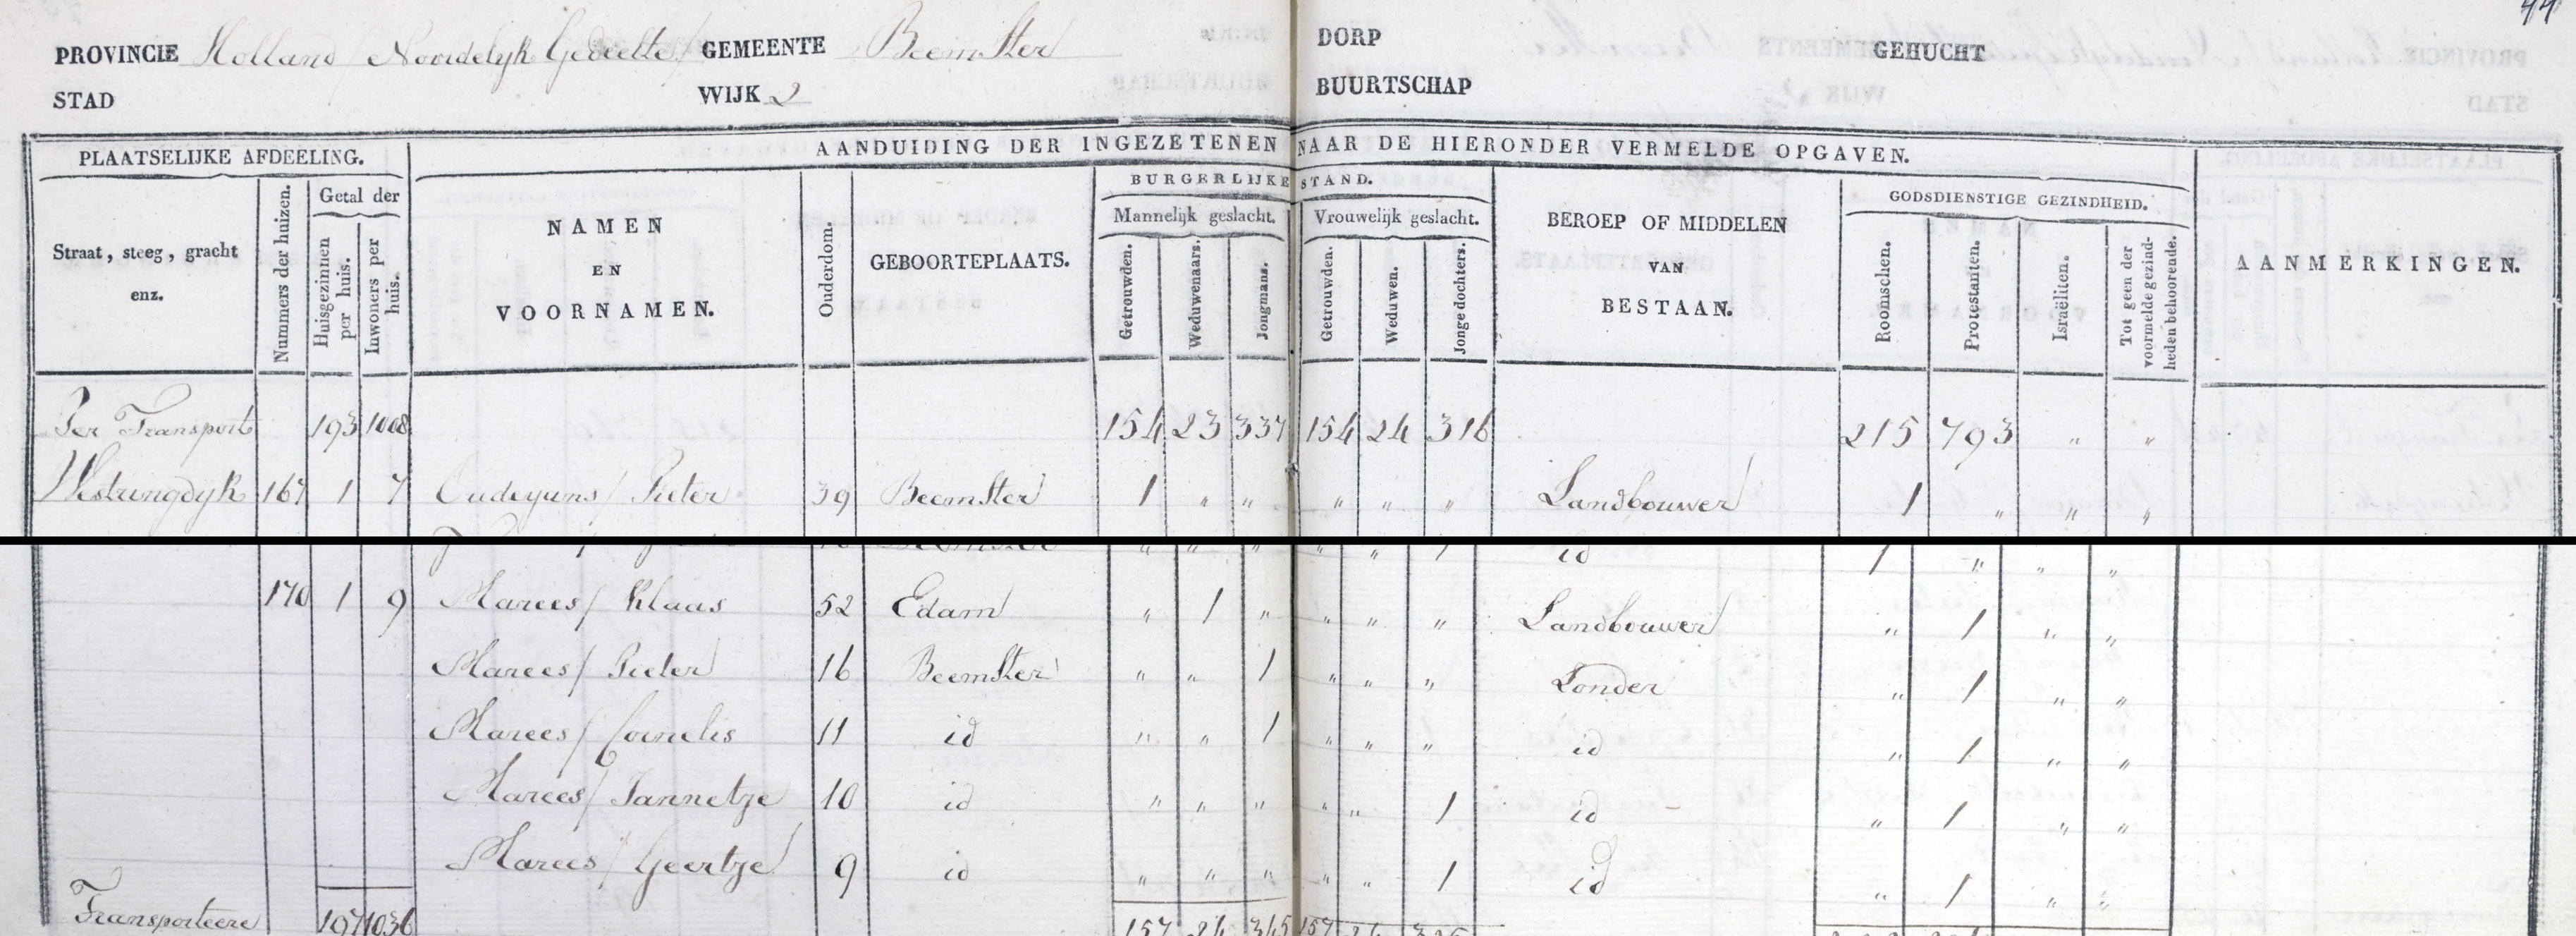 44
PROVINCIE Holland / Noordelyk Gedeelte / GEMEENTE Beemster DORP GEHUCHT
STAD WIJK 2 BUURTSCHAP
PLAATSELIJKE AFDEELING. AANDUIDING DER INGEZETENEN NAAR DE HIERONDER VERMELDE OPGAVEN.
Straat, steeg, gracht enz. Nummers der huizen. Getal der Huisgezinnen per huis. Inwoners per huis. NAMEN EN VOORNAMEN. Ouderdom. GEBOORTEPLAATS. BURGERLIJKE STAND. Mannelijk geslacht. Getrouwden. Weduwenaars. Jongmans. Vrouwelijk geslacht. Getrouwden. Weduwen. Jonge dochters. BEROEP OF MIDDELEN VAN BESTAAN. GODSDIENSTIGE GEZINDHEID. Roomschen. Protestanten. Israëliten. Tot geen der voormelde gezindheden behoorende. AANMERKINGEN.
Per Transport 193 1008 154 23 337 154 24 316 215 793 " "
Westringdyk 167 1 7 Oudejans / Pieter 39 Beemster 1 " " " " " Landbouwer 1 " " "
Beemster " " " " " 1 id 1 " " "
170 1 9 Marees / Klaas 52 Edam " 1 " " " " Landbouwer " 1 " "
Marees / Pieter 16 Beemster " " 1 " " " Zonder " 1 " "
Marees / Cornelis 11 id " " 1 " " " id " 1 " "
Marees / Jannetje 10 id " " " " " 1 id " 1 " "
Marees / Geertje 9 id " " " " " 1 id " 1 " "
Transporteere 197 1036 157 24 345 157